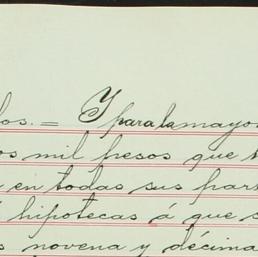 los. = Y para la mayor
os mil pesos que t
en todas sus part
hipotecas á que s
s novena y décima